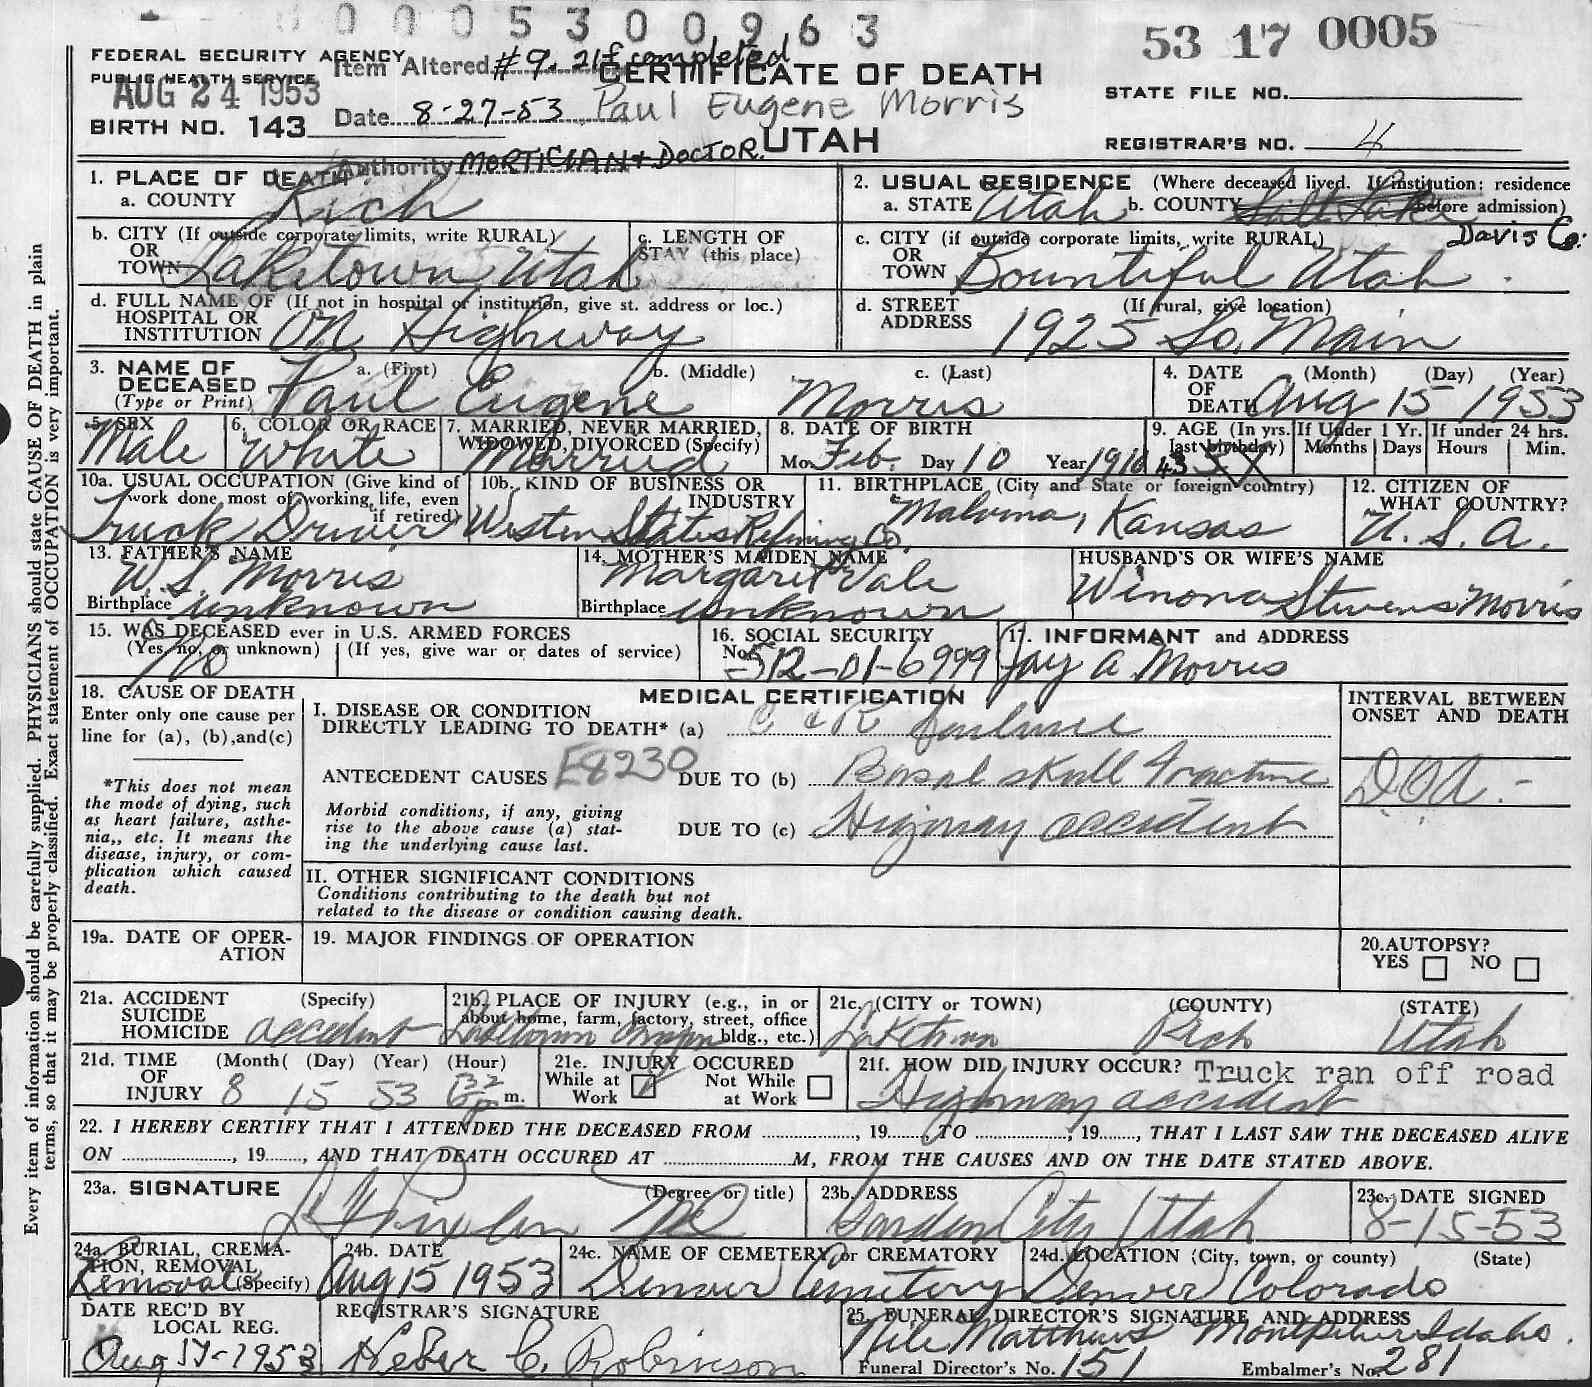 0 0 0 5 3 0 0 9 6 3
53 17 0005
FEDERAL SECURITY AGENCY
PUBLIC HEALTH SERVICE
AUG 24 1953
BIRTH NO. 143
Item Altered #9. 21f completed
Date 8-27-53
Authority MORTICIAN + DOCTOR.
CERTIFICATE OF DEATH
Paul Eugene Morris
UTAH
STATE FILE NO.
REGISTRAR'S NO. 4
1. PLACE OF DEATH
a. COUNTY Rich
2. USUAL RESIDENCE (Where deceased lived. If institution: residence before admission)
a. STATE Utah b. COUNTY Salt Lake Davis Co.
b. CITY (If outside corporate limits, write RURAL) OR TOWN Laketown Utah
c. LENGTH OF STAY (this place)
c. CITY (if outside corporate limits, write RURAL) OR TOWN Bountiful Utah
d. FULL NAME OF (If not in hospital or institution, give st. address or loc.) HOSPITAL OR INSTITUTION On Highway
d. STREET ADDRESS (If rural, give location) 1925 So. Main
3. NAME OF DECEASED (Type or Print) a. (First) b. (Middle) c. (Last)
Paul Eugene Morris
4. DATE OF DEATH (Month) (Day) (Year) Aug 15 1953
5. SEX Male
6. COLOR OR RACE White
7. MARRIED, NEVER MARRIED, WIDOWED, DIVORCED (Specify) Married
8. DATE OF BIRTH Mo. Feb. Day 10 Year 1910
9. AGE (In yrs. last birthday) 43
If Under 1 Yr. Months Days
If under 24 hrs. Hours Min.
10a. USUAL OCCUPATION (Give kind of work done, most of working life, even if retired) Truck Driver
10b. KIND OF BUSINESS OR INDUSTRY Western States Refining Co.
11. BIRTHPLACE (City and State or foreign country) Malvina, Kansas
12. CITIZEN OF WHAT COUNTRY? U.S.A.
13. FATHER'S NAME W.S. Morris
Birthplace unknown
14. MOTHER'S MAIDEN NAME Margaret Vale
Birthplace unknown
HUSBAND'S OR WIFE'S NAME
Winona Stevens Morris
15. WAS DECEASED ever in U.S. ARMED FORCES
(Yes, no, or unknown) (If yes, give war or dates of service)
No
16. SOCIAL SECURITY No. 512-01-6999
17. INFORMANT and ADDRESS
Jay A Morris
18. CAUSE OF DEATH
Enter only one cause per line for (a), (b), and (c)
*This does not mean the mode of dying, such as heart failure, asthenia,, etc. It means the disease, injury, or complication which caused death.
MEDICAL CERTIFICATION
I. DISEASE OR CONDITION DIRECTLY LEADING TO DEATH* (a) C & R failure
ANTECEDENT CAUSES E8230 DUE TO (b) Basal skull fracture
Morbid conditions, if any, giving rise to the above cause (a) stating the underlying cause last.
DUE TO (c) Highway accident
INTERVAL BETWEEN ONSET AND DEATH
DOA. -
II. OTHER SIGNIFICANT CONDITIONS
Conditions contributing to the death but not related to the disease or condition causing death.
19a. DATE OF OPERATION
19. MAJOR FINDINGS OF OPERATION
20. AUTOPSY?
YES NO
21a. ACCIDENT SUICIDE HOMICIDE (Specify) accident
21b. PLACE OF INJURY (e.g., in or about home, farm, factory, street, office bldg., etc.) Laketown Canyon
21c. (CITY or TOWN) (COUNTY) (STATE)
Laketown Rich Utah
21d. TIME OF INJURY (Month( (Day) (Year) (Hour)
8 15 53 m.
21e. INJURY OCCURED
While at Work Not While at Work
21f. HOW DID INJURY OCCUR? Truck ran off road
Highway accident
22. I HEREBY CERTIFY THAT I ATTENDED THE DECEASED FROM ............, 19......, TO ............, 19......, THAT I LAST SAW THE DECEASED ALIVE
ON ............, 19......, AND THAT DEATH OCCURED AT ............M, FROM THE CAUSES AND ON THE DATE STATED ABOVE.
23a. SIGNATURE (Degree or title)
23b. ADDRESS Garden City Utah
23c. DATE SIGNED 8-15-53
24a. BURIAL, CREMATION, REMOVAL (Specify) Removal
24b. DATE Aug 15 1953
24c. NAME OF CEMETERY or CREMATORY Denver Cemetery
24d. LOCATION (City, town, or county) (State)
Denver Colorado
DATE REC'D BY LOCAL REG.
REGISTRAR'S SIGNATURE
Heber C. Robinson
25. FUNERAL DIRECTOR'S SIGNATURE AND ADDRESS
Nile Matthews Montpelier Idaho.
Funeral Director's No. 151 Embalmer's No. 281
Every item of information should be carefully supplied. PHYSICIANS should state CAUSE OF DEATH in plain
terms, so that it may be properly classified. Exact statement of OCCUPATION is very important.